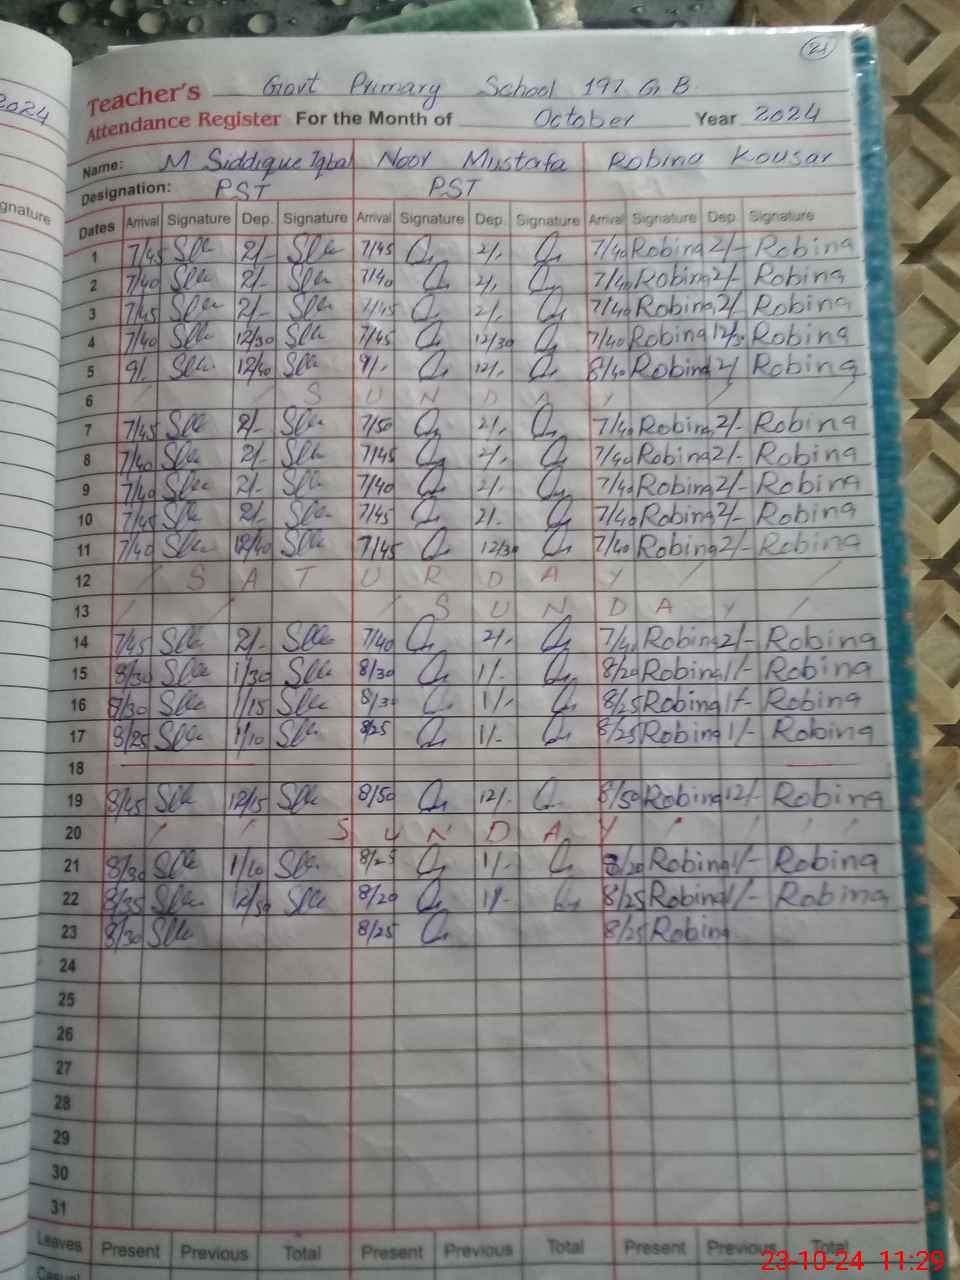 21
2024
Teacher's Govt Primary School 197 G.B
Attendance Register For the Month of October Year 2024
Name: M Siddique Iqbal Noor Mustafa Robina Kousar
Designation: PST PST
gnature
Dates Arrival Signature Dep. Signature Arrival Signature Dep. Signature Arrival Signature Dep. Signature
1 7/45 2/- 7/45 2/- 7/40 Robina 2/- Robina
2 7/40 2/- 7/40 2/- 7/40 Robina 2/- Robina
3 7/45 2/- 7/45 2/- 7/40 Robina 2/- Robina
4 7/40 12/30 7/45 12/30 7/40 Robina 12/30 Robina
5 9/- 12/40 9/- 12/- 8/40 Robina 2/ Robina
6 SUNDAY
7 7/45 2/- 7/50 2/- 7/40 Robina 2/- Robina
8 7/40 2/- 7/45 2/- 7/40 Robina 2/- Robina
9 7/40 2/- 7/40 2/- 7/40 Robina 2/- Robina
10 7/45 2/- 7/45 2/- 7/40 Robina 2/- Robina
11 7/40 12/40 7/45 12/30 7/40 Robina 2/- Robina
12 SATURDAY
13 SUNDAY
14 7/45 2/- 7/40 2/- 7/40 Robina 2/- Robina
15 8/30 1/30 8/30 1/- 8/20 Robina 1/- Robina
16 8/30 1/15 8/30 1/- 8/25 Robina 1/- Robina
17 8/25 1/10 8/25 1/- 8/25 Robina 1/- Robina
18
19 8/45 12/15 8/50 12/- 8/50 Robina 12/- Robina
20 SUNDAY
21 8/30 1/10 8/25 1/- 8/20 Robina 1/- Robina
22 8/35 12/50 8/20 1/- 8/25 Robina 1/- Robina
23 8/30 8/25 8/25 Robina
24
25
26
27
28
29
30
31
Leaves Present Previous Total Present Previous Total Present Previous Total
Casual
23-10-24 11:29